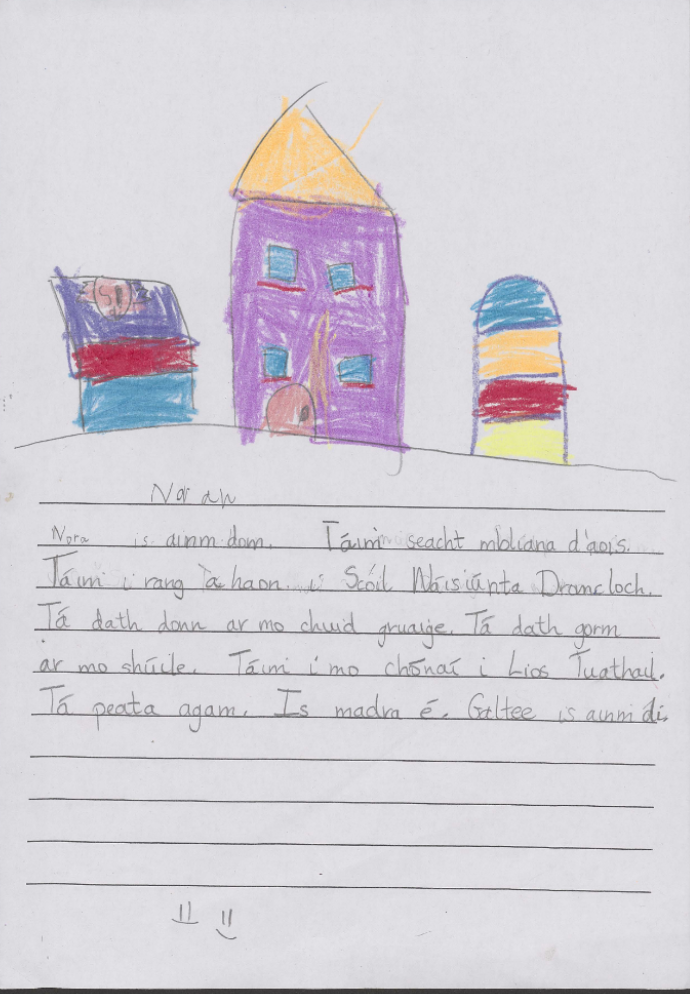 Norah
Nora is ainm dom. Táim seacht mbliana d'aois.
Táim i rang a haon i Scoil Náisiúnta Dromcloch.
Tá dath donn ar mo chuid gruaige. Tá dath gorm
ar mo shúile. Táim i mo chónaí i Lios Tuathail.
Tá peata agam. Is madra é. Galtee is ainm di.